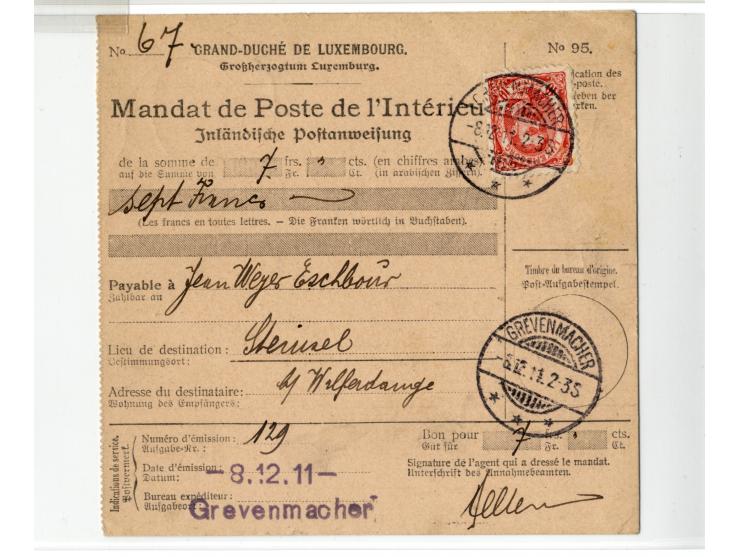 No 67 GRAND-DUCHÉ DE LUXEMBOURG. No 95.
Großherzogtum Luxemburg.
Mandat de Poste de l'Intérieu
Inländische Postanweisung
ication des
-poste.
eben der
rten.
GREVENMACHER
-8.12.11.2-3S
de la somme de 7 frs. " cts. (en chiffres arabes)
auf die Summe von Fr. Ct. (in arabischen Ziffern).
sept Francs
(Les francs en toutes lettres. – Die Franken wörtlich in Buchstaben).
Timbre du bureau d'origine.
Post-Aufgabestempel.
Payable à Jean Weyer Eschbour
Zahlbar an
GREVENMACHER
-8.12.11.2-3S
Lieu de destination: Steinsel
Bestimmungsort:
Adresse du destinataire: b/ Welferdange
Wohnung des Empfängers:
Indications de service.
Postvermerk.
Numéro d'émission: 129 Bon pour 7 frs. " cts.
Aufgabe-Nr.: Gut für Fr. Ct.
Date d'émission: -8.12.11- Signature de l'agent qui a dressé le mandat.
Datum: Unterschrift des Annahmebeamten.
Bureau expéditeur: Grevenmacher
Aufgabeort